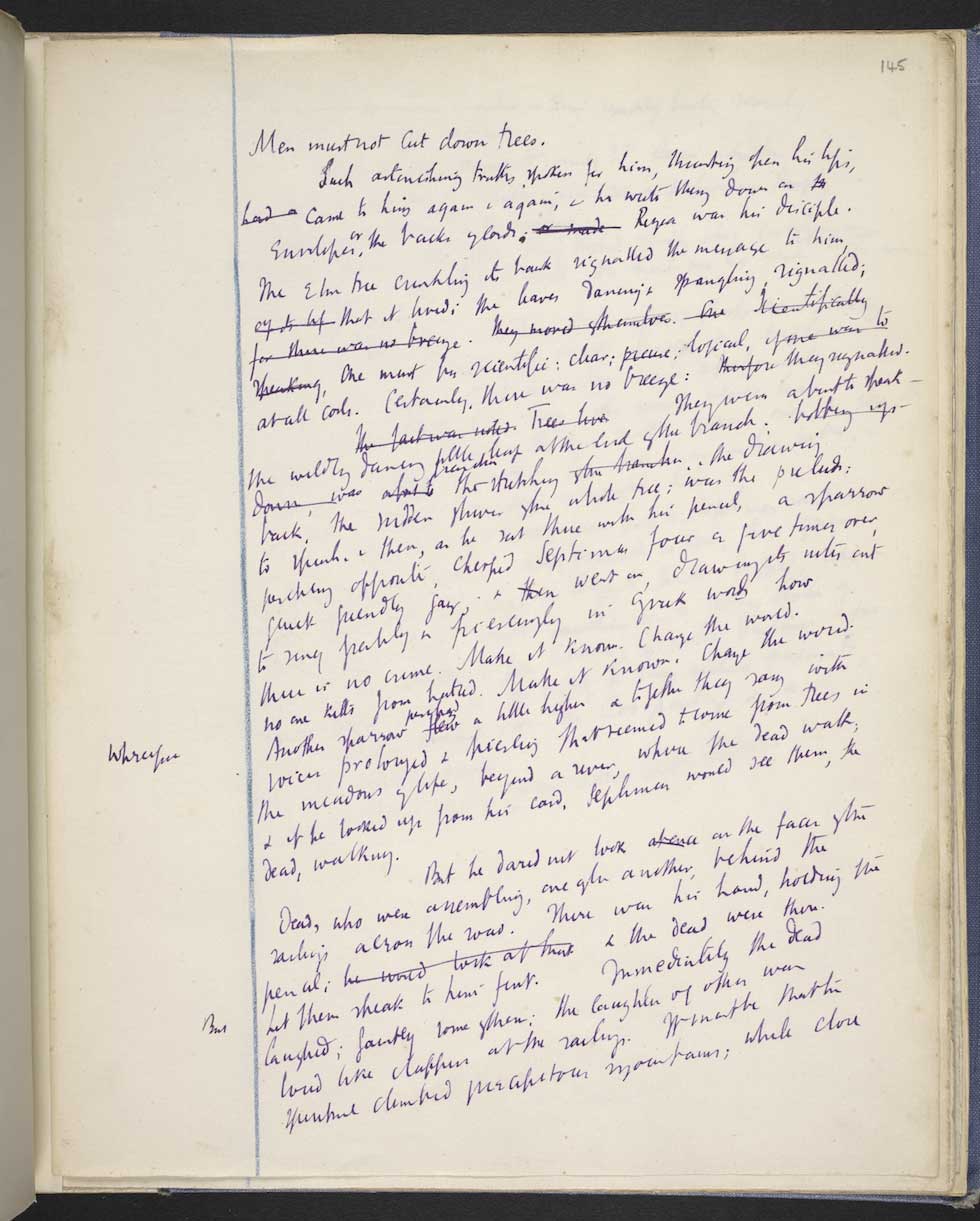 145
Men must not cut down trees.
Such astonishing truths, spoken for him, thrusting open his lips,
had a came to him again & again; & he wrote them down on the
Envelopes, or the backs of cards; or made Rezia was his disciple.
The Elm tree crinkling its bark signalled the message to him,
that it lived; the leaves dancing & spangling, signalled;
for there was no breeze. They moved of themselves. One Scientifically
speaking, One must be scientific: clear; precise; logical, if one was to
at all costs. Certainly, there was no breeze: therefore they signalled.
The fact was noted. Trees live They were about to speak –
the wildly dancing little leaf at the end of the branch. bobbing up –
down, was about to the stretching of the branches, the drawing
back, the sudden shiver of the whole tree; was the prelude;
to speech. & then, as he sat there with his pencil, a sparrow
perching opposite, chirped Septimus four or five times over,
quick friendly gay; & then went on, drawing its notes out
to sing freshly & piercingly in Greek words how
there is no crime. Make it known. Change the world.
no one kills from hatred. Make it known. Change the world.
Another sparrow flew perched a little higher & together they sang with
voices prolonged & piercing that seemed to come from trees in
Wherefore
the meadows of life, beyond a river, where the dead walk;
& if he looked up from his card, Septimus would see them, the
dead, walking.
But he dared not look at once on the faces of the
Dead, who were assembling, one after another, behind the
railings across the road. There was his hand, holding the
pencil; he would look at that & the dead were there.
Let them speak to him first. Immediately the dead
But
laughed; faintly some of them; the laughter of others was
loud like clappers at the railings. It must be that the
climbed precipitous mountains; while close